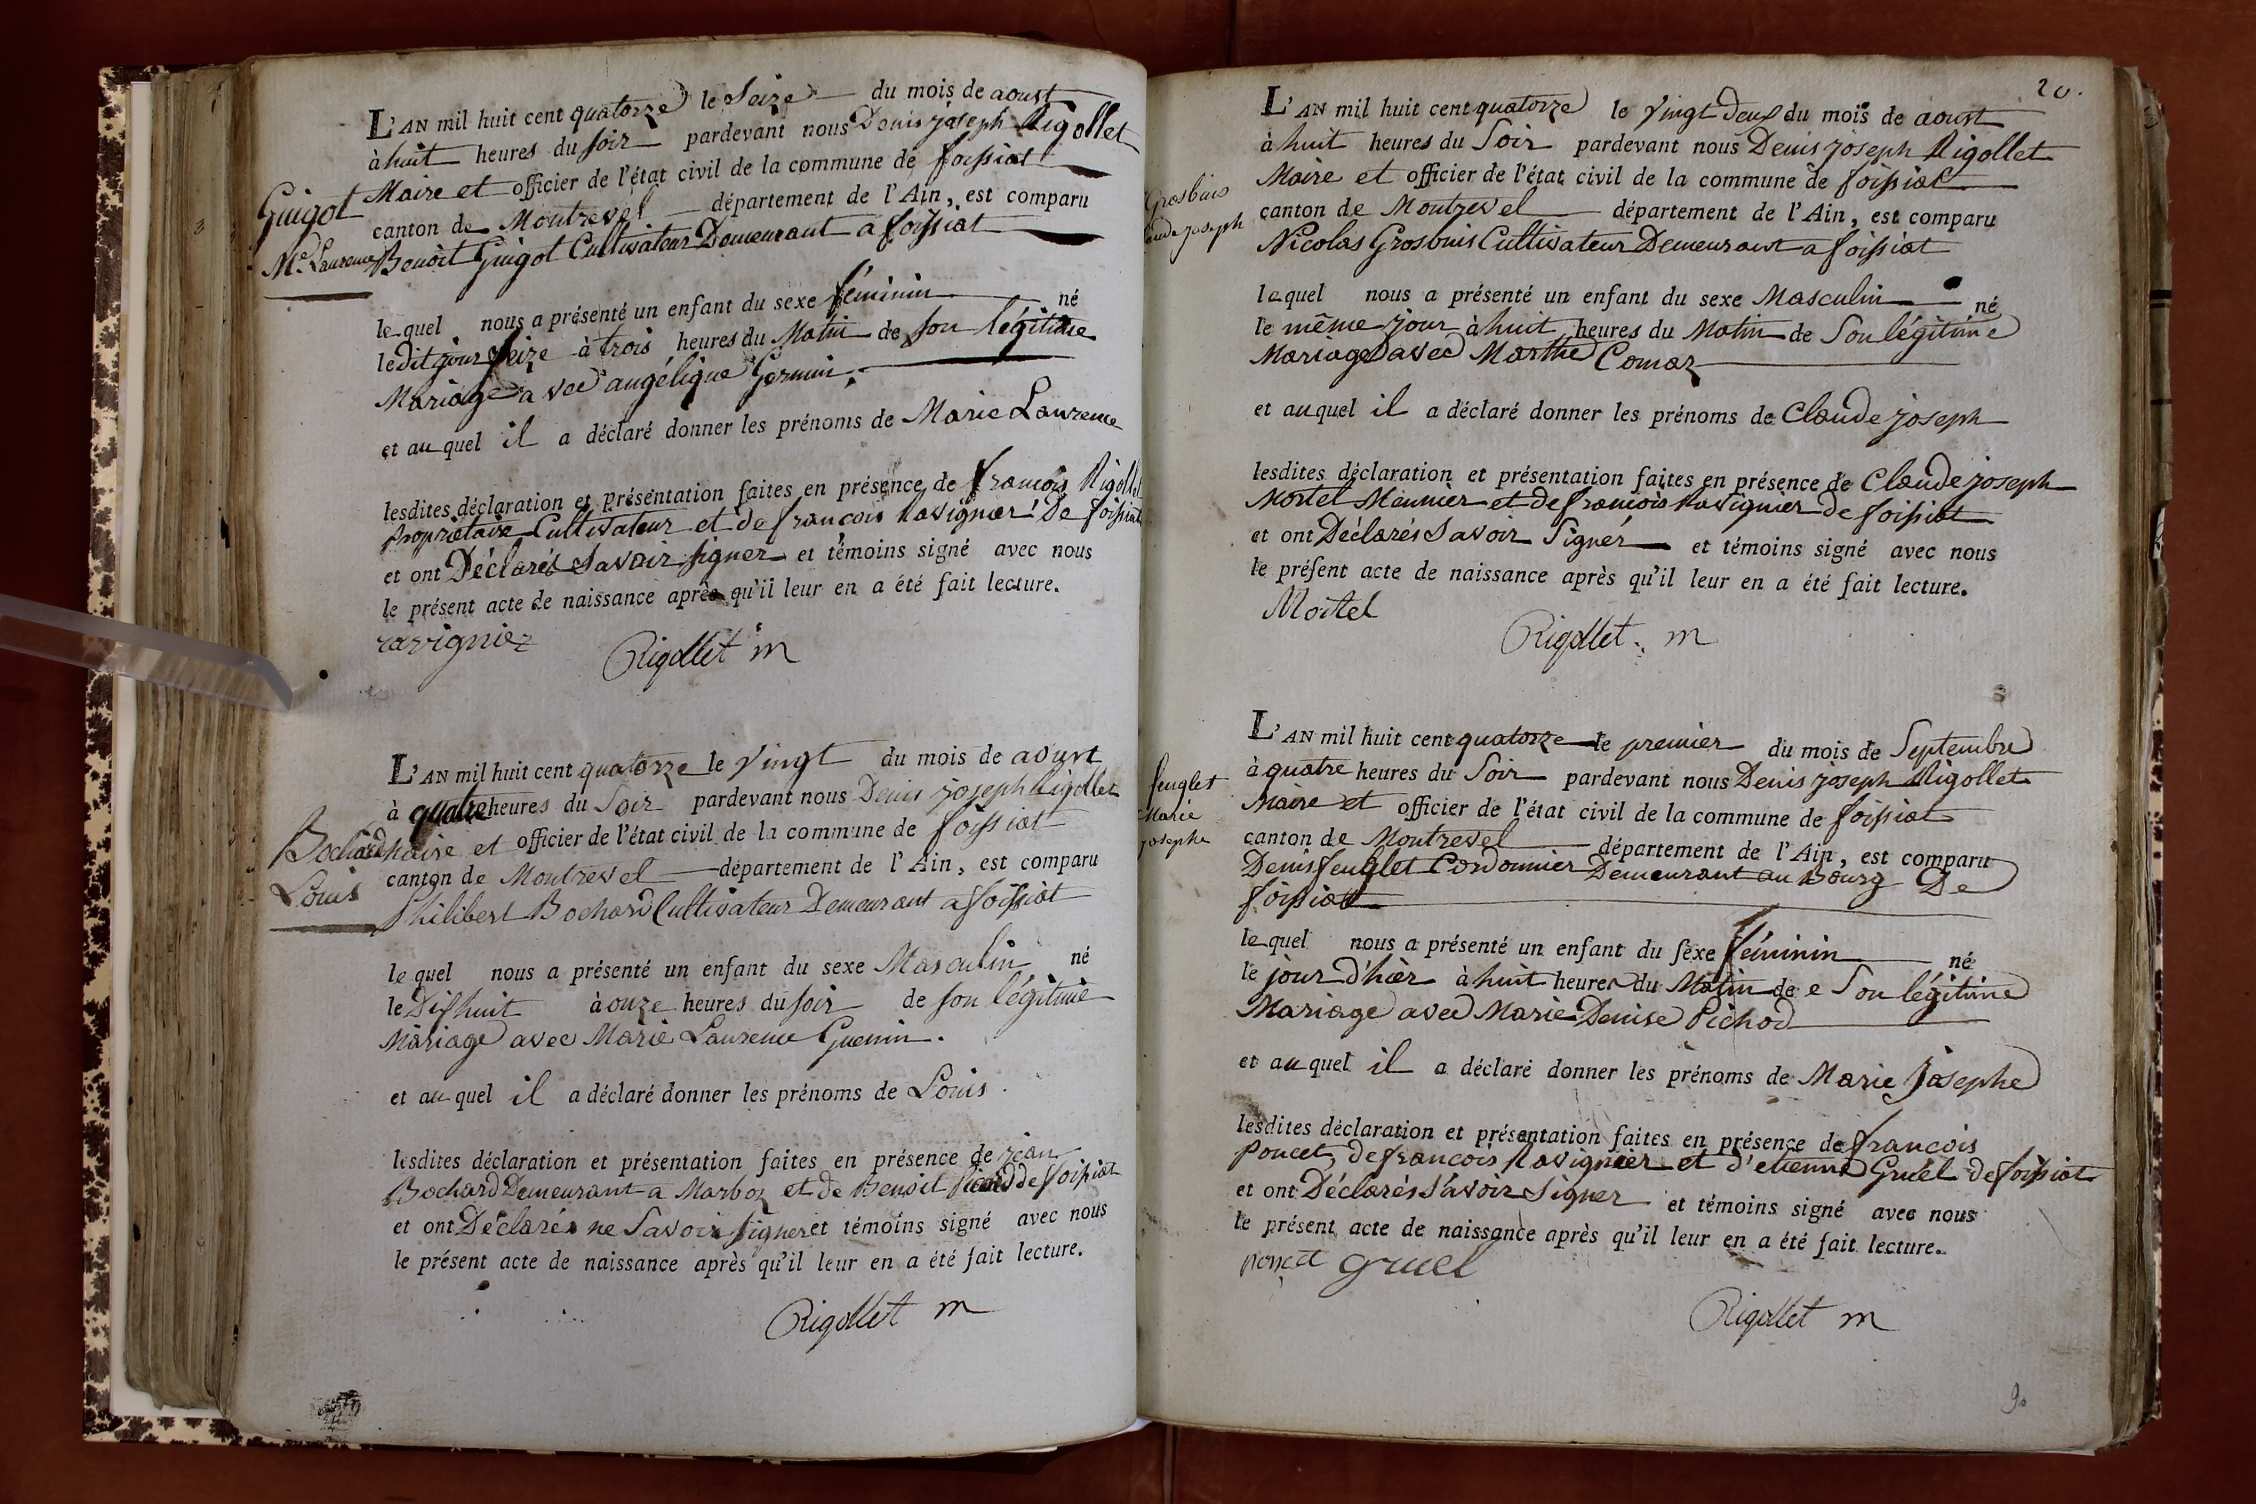 L'AN mil huit cent quatorze le Seize du mois de aoust
à huit heures du soir pardevant nous Denis joseph Rigollet
Maire et officier de l'état civil de la commune de foissiat
canton de Montrevel département de l'Ain, est comparu
Guigot
Mie Laurence
Benoit Guigot Cultivateur Demeurant a foissiat
lequel nous a présenté un enfant du sexe féminin né
ledit jour seize à trois heures du Matin de son légitime
Mariage avec angélique
et auquel il a déclaré donner les prénoms de Marie Laurence
lesdites déclaration et présentation faites en présence de francois Rigollet
propriétaire Cultivateur et de francois Ravignier De foissiat
et ont Déclarés Savoir signer et témoins signé avec nous
le présent acte de naissance après qu'il leur en a été fait lecture.
ravignier
Rigollet m
L'AN mil huit cent quatorze le Vingt du mois de aoust
à quatre heures du Soir pardevant nous Denis joseph Rigollet
Bochard
Louis
maire et officier de l'état civil de la commune de foissiat
canton de Montrevel département de l'Ain, est comparu
Philibert Bochard Cultivateur Demeurant a foissiat
lequel nous a présenté un enfant du sexe Masculin né
le Dishuit à onze heures du soir de son légitime
Mariage avec Marie Laurence Guenin.
et auquel il a déclaré donner les prénoms de Louis
lesdites déclaration et présentation faites en présence de jean
Bochard Demeurant a Marboz et de Benoit Picard de foissiat
et ont Déclarés ne Savoir signer et témoins signé avec nous
le présent acte de naissance après qu'il leur en a été fait lecture.
Rigollet m
20.
L'AN mil huit cent quatorze le Vingt Deux du mois de aoust
à huit heures du Soir pardevant nous Denis joseph Rigollet
Maire et officier de l'état civil de la commune de foissiat
Grosbuis
aude joseph
canton de Montrevel département de l'Ain, est comparu
Nicolas Grosbuis Cultivateur Demeurant a foissiat
lequel nous a présenté un enfant du sexe Masculin né
le même jour à huit heures du Matin de Son légitime
Mariage avec Marthe Comaz
et auquel il a déclaré donner les prénoms de Claude joseph
lesdites déclaration et présentation faites en présence de Claude joseph
Mortel Meunier et de francois Ravignier de foissiat
et ont Déclarés Savoir Signer et témoins signé avec nous
le présent acte de naissance après qu'il leur en a été fait lecture.
Mortel
Rigollet m
L'AN mil huit cent quatorze le premier du mois de Septembre
à quatre heures du Soir pardevant nous Denis joseph Rigollet
feuglet
Marie
josephe
Maire et officier de l'état civil de la commune de foissiat
canton de Montrevel département de l'Ain, est comparu
Denis feuglet Cordonnier Demeurant au Bourg De
foissiat
lequel nous a présenté un enfant du sexe féminin né
le jour d'hier à huit heures du Matin de Son légitime
Mariage avec Marie Denise Pichod
et auquel il a déclaré donner les prénoms de Marie Josephe
lesdites déclaration et présentation faites en présence de francois
Poncet, de francois Ravignier et d'etienne Gruel de foissiat
et ont Déclarés Savoir Signer et témoins signé avec nous
le présent acte de naissance après qu'il leur en a été fait lecture.
poncet gruel
Rigollet m